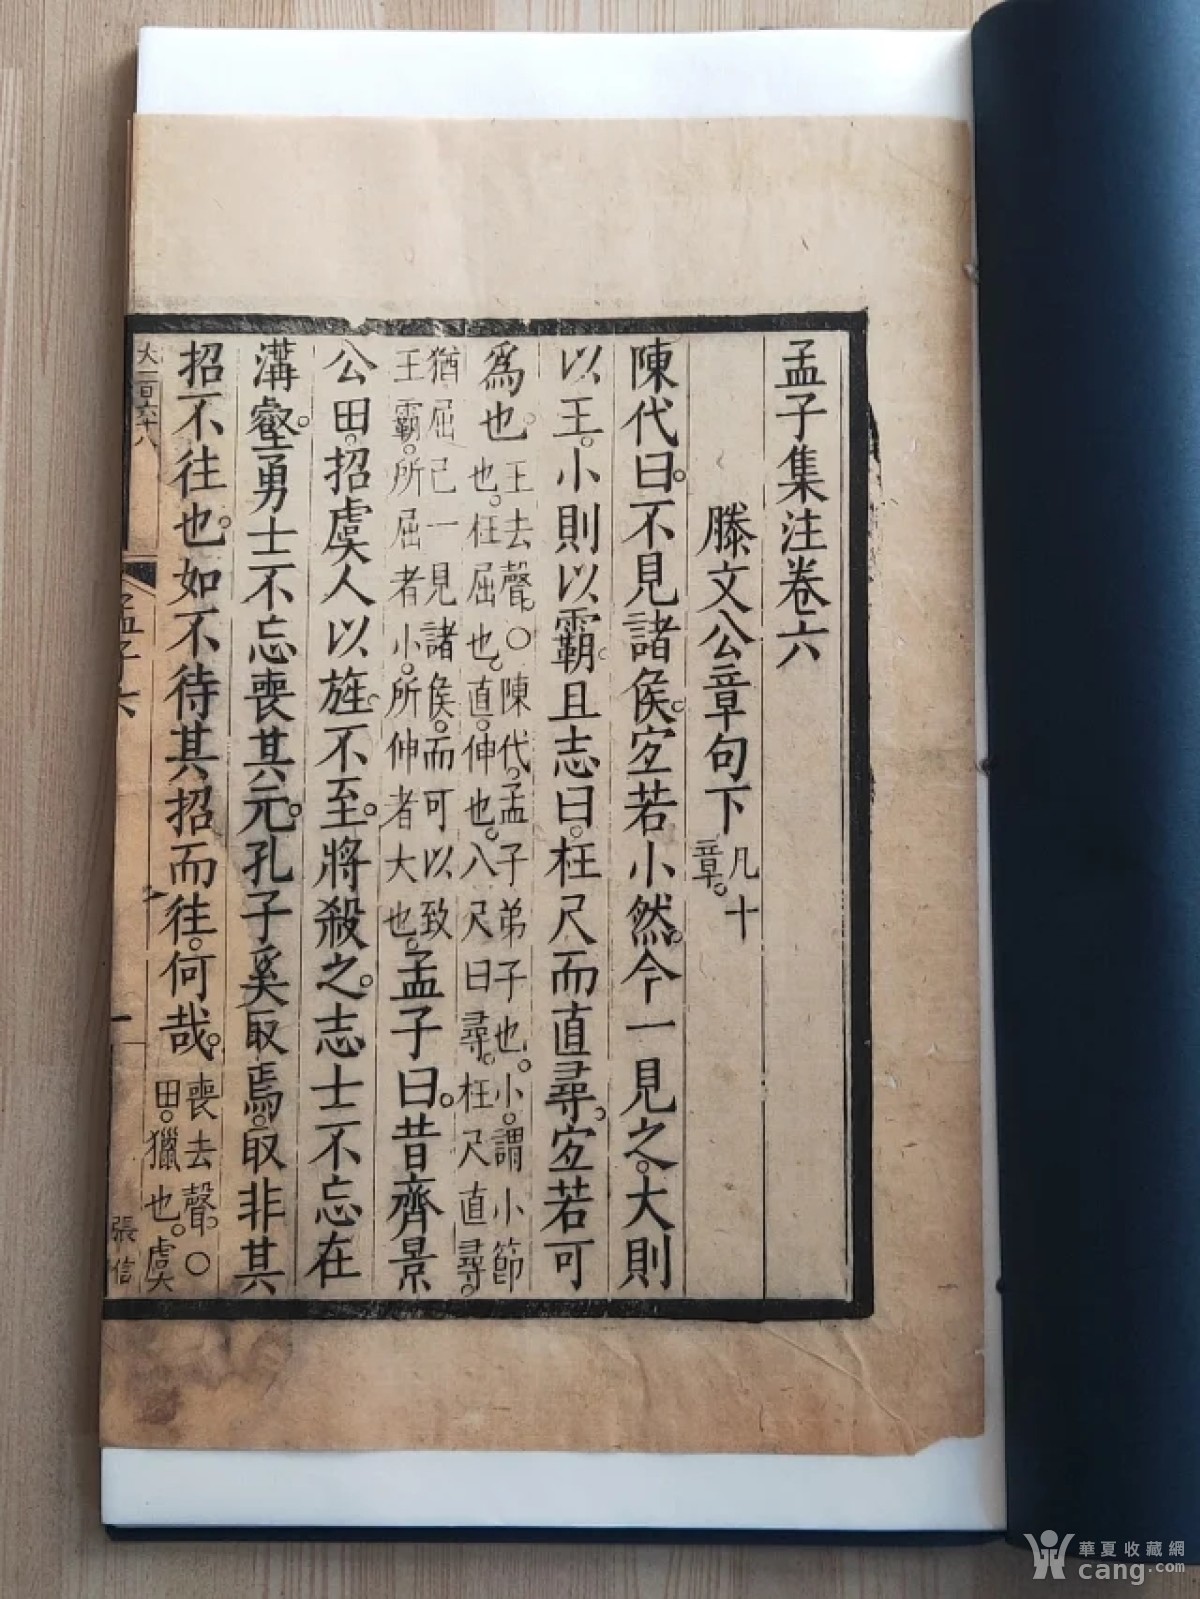 孟子集注卷六
滕文公章句下
凡十
章。
陳代曰。不見諸侯。宐若小然。今一見之。大則
以王。小則以霸。且志曰。枉尺而直尋。宐若可
爲也。
王去聲。○陳代。孟子弟子也。小。謂小節
也。枉屈也。直。伸也。八尺曰尋。枉尺直尋。
猶屈己一見諸侯。而可以致
王霸。所屈者小。所伸者大也。
孟子曰。昔齊景
公田。招虞人以旌。不至。將殺之。志士不忘在
溝壑。勇士不忘喪其元。孔子奚取焉。取非其
招不往也。如不待其招而往。何哉。
喪去聲。○
田。獵也。虞
大一百六十八
孟子六
一
張信
華夏收藏網
cang.com